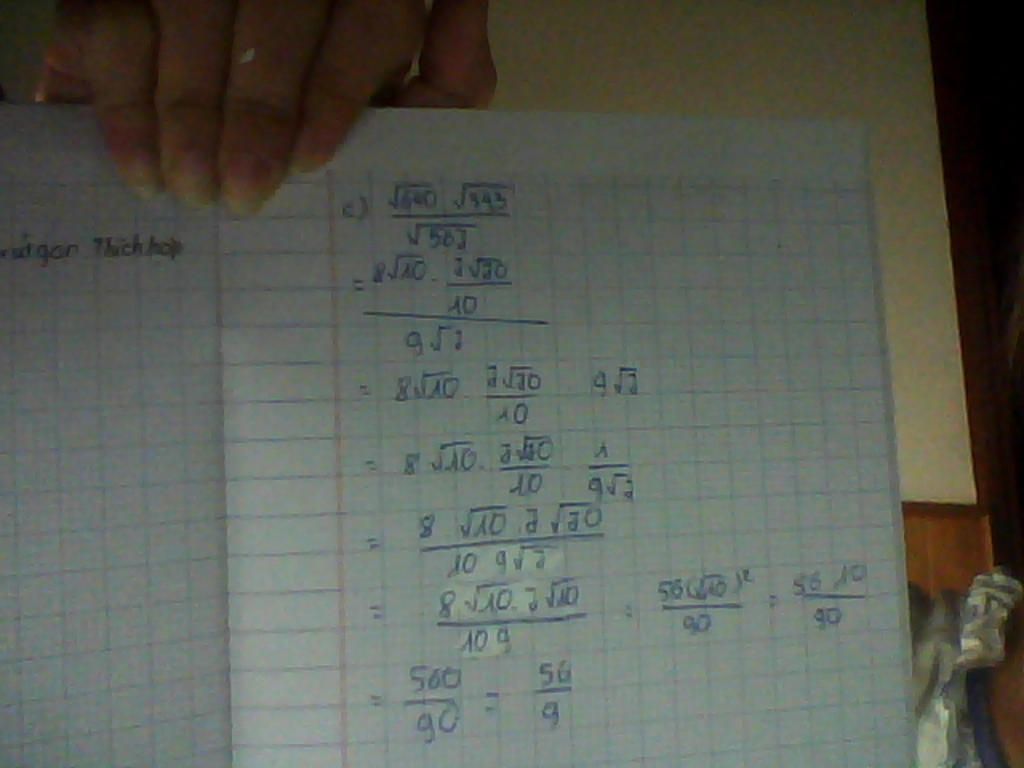 Thích hợp
c) √640 √343 / √567
= 8√10 . 7√70/10 / 9√7
= 8√10 . 7√70/10 9√7
= 8√10 . 7√70/10 1/9√7
= 8 √10 . 7√70 / 10 9√7
= 8√10 . 7√10 / 10 9 = 56(√10)² / 90 = 56 10 / 90
= 560/90 = 56/9